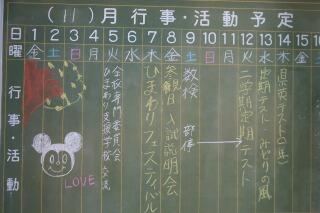 (11)月行事・活動予定
日 1 2 3 4 5 6 7 8 9 10 11 12 13 14 15 16
曜 金 土 日 月 火 水 木 金 土 日 月 火 水 木 金
行事・活動
全校専門委員会
ひまわり支援学校交流
ひまわりフェスティバル
参観日 入試説明会
数検
部停
二学期定期テスト
定期テスト みどりの風
LOVE